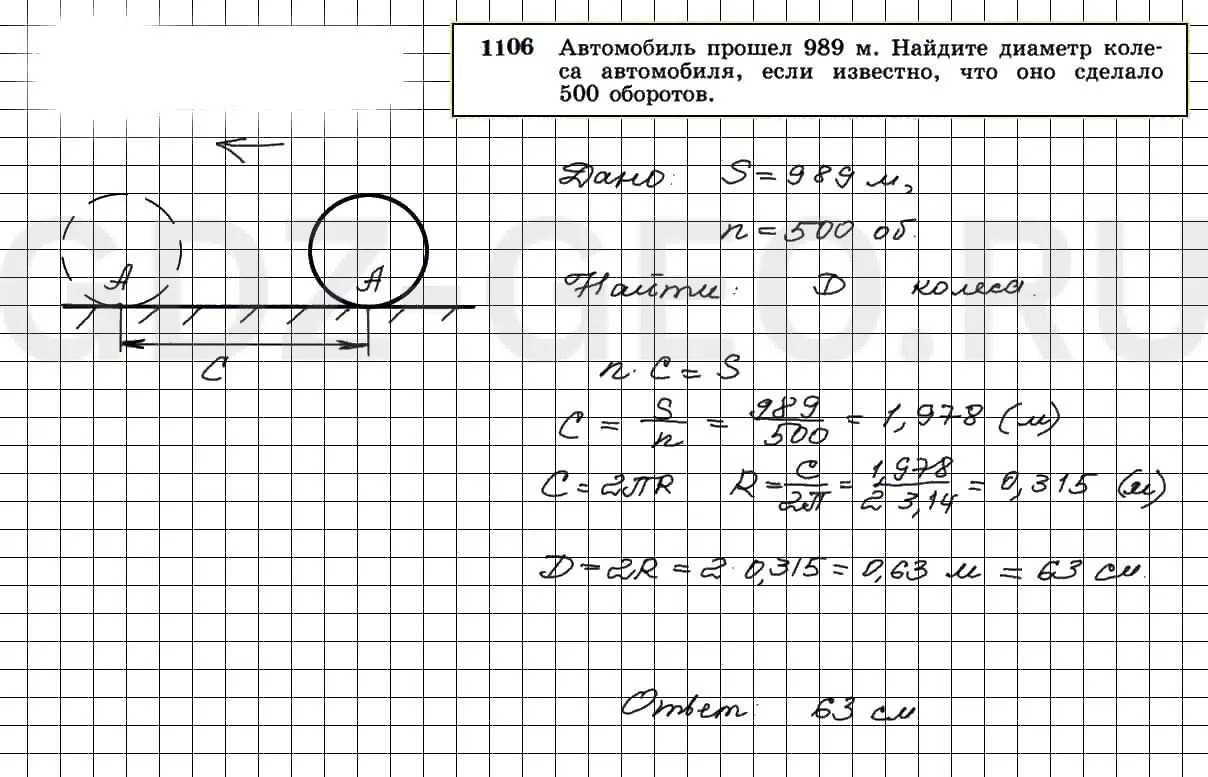 1106 Автомобиль прошел 989 м. Найдите диаметр коле-
са автомобиля, если известно, что оно сделало
500 оборотов.
Дано: S = 989 м,
n = 500 об.
Найти: D колеса.
A A
C
n · C = S
C = S/n = 989/500 = 1,978 (м)
C = 2πR R = C/2π = 1,978/2 3,14 = 0,315 (м)
D = 2R = 2 · 0,315 = 0,63 м = 63 см.
Ответ: 63 см
GDZ-GEO.RU